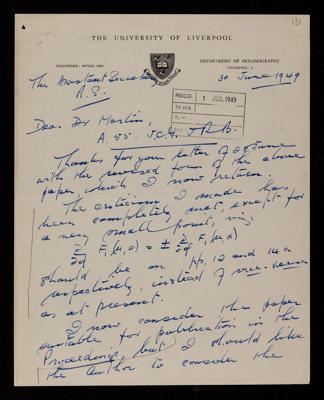 131
THE UNIVERSITY OF LIVERPOOL
TELEPHONE: ROYAL 6022
DEPARTMENT OF OCEANOGRAPHY
LIVERPOOL, 3
The Assistant Secretary
R.S.
30 June 1949
RECD. 1 JUL 1949
Dear Dr Martin,
A. 55. J.C.P.
Thanks for your letter of 28 June
with the revised form of the above
paper, which I now return.
The criticism I made has
been completely met, except for
a very small point, viz.
should be on pp. 12 and 14a
respectively, instead of vice-versa
as at present.
I now consider the paper
suitable for publication in the
Proceedings, but I should like
the author to consider the